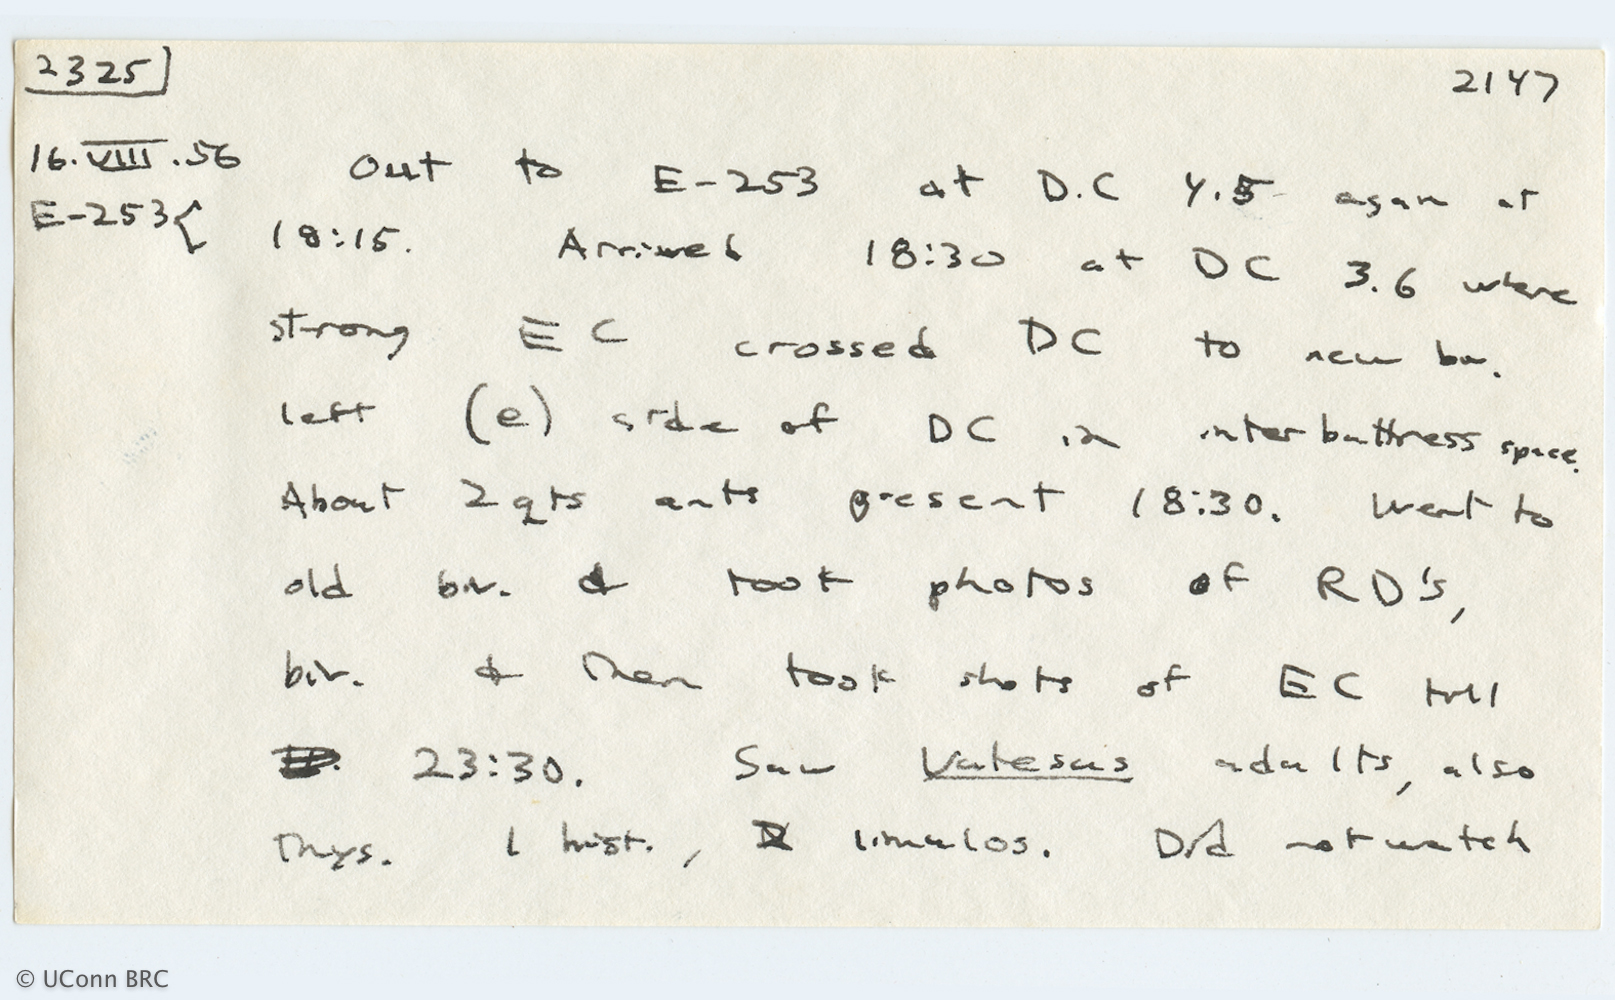 2325 2147
16.VIII.56 Out to E-253 at D.C 4.5 again at
E-253{ 18:15. Arrived 18:30 at DC 3.6 where
strong EC crossed DC to new biv.
left (e) side of DC in interbuttress space.
About 2 qts ants present 18:30. Went to
old biv. & took photos of RD's,
biv. & then took shots of EC till
23:30. Saw Vatesus adults, also
Thys. 1 hist., limulos. Did not watch
© UConn BRC